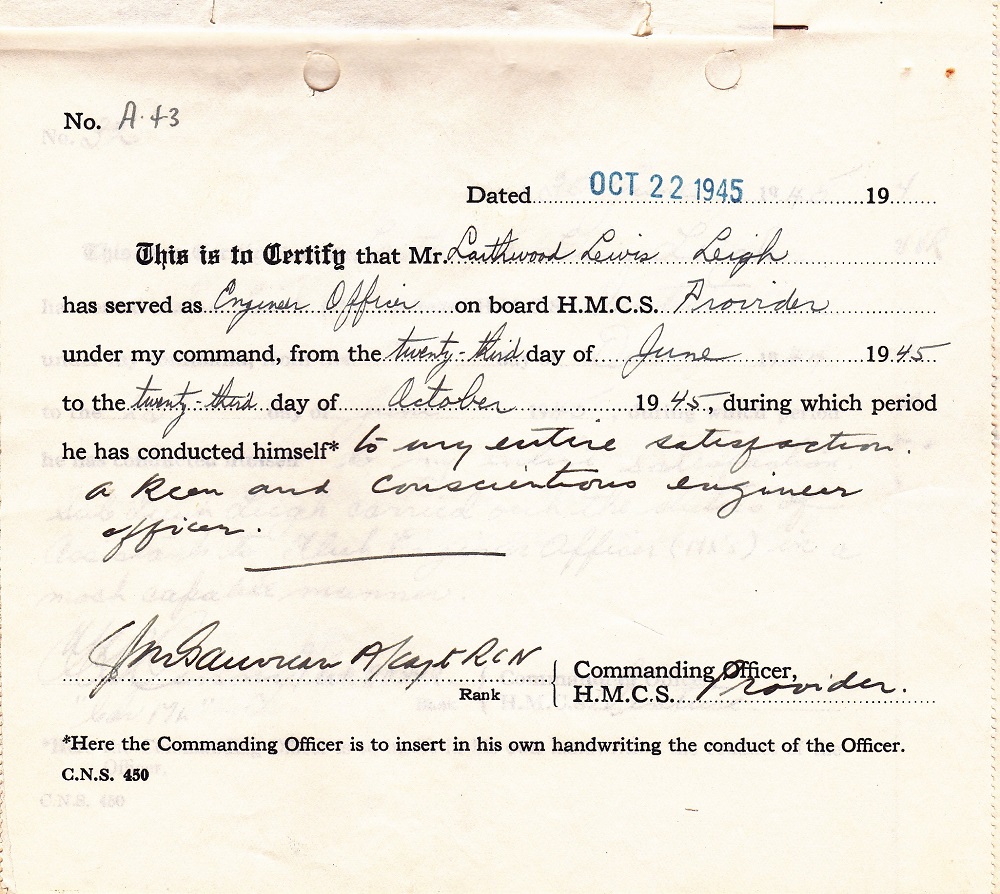 No. A.43
Dated OCT 22 1945 19
This is to Certify that Mr. Larthwood Lewis Leigh
has served as Engineer Officer on board H.M.C.S. Provider
under my command, from the twenty-third day of June 1945
to the twenty-third day of October 1945, during which period
he has conducted himself* to my entire satisfaction.
a keen and conscientious engineer
officer.
A/Capt RCN
Rank
Commanding Officer,
H.M.C.S. Provider.
*Here the Commanding Officer is to insert in his own handwriting the conduct of the Officer.
C.N.S. 450